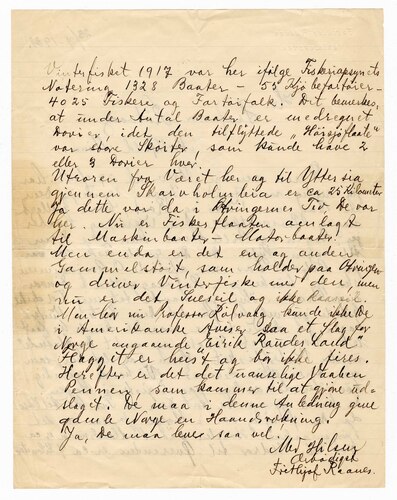 Vinterfisket 1917 var her ifølge Fiskeriopsynets
Notering 1328 Baater – 55 Kjøbefartøier
4025 Fiskere og Fartøifolk. Det bemerkes,
at under Antal Baater er medregnet
Dorier, idet den tilflyttede "Havsjøflaate"
var store Skøiter, som kunde have 2
eller 3 Dorier hver.
Utroren fra Været her og til Yttersia
gjennem Skarvholmleia er ca 25 Kilometer
Ja dette var da i Otringernes Tid. De var
her. Nu er Fiskeflaaten anlagt
til Maskinbaater – Motorbaater.
Men enda er det en og anden
Gammelstøit, som holder paa Otringen
og driver Vinterfiske med den, men
nu er det Sneseil og ikke Raaseil.
Men hør nu Professor Rølvaag kunde ikke De
i Amerikanske Aviser slaa et Slag for
Norge angaaende "Eirik Raudes Land"
Flagget er heist og bør ikke fires.
Herefter er det det uanselige Vaaben
Pennen, som kommer til at gjøre ud-
slaget. De maa i denne Anledning give
gamle Norge en Haandsrækning.
Ja, De maa leve saa vel.
Med Hilsen
Ærbødigst
Fridtjof Raanes.